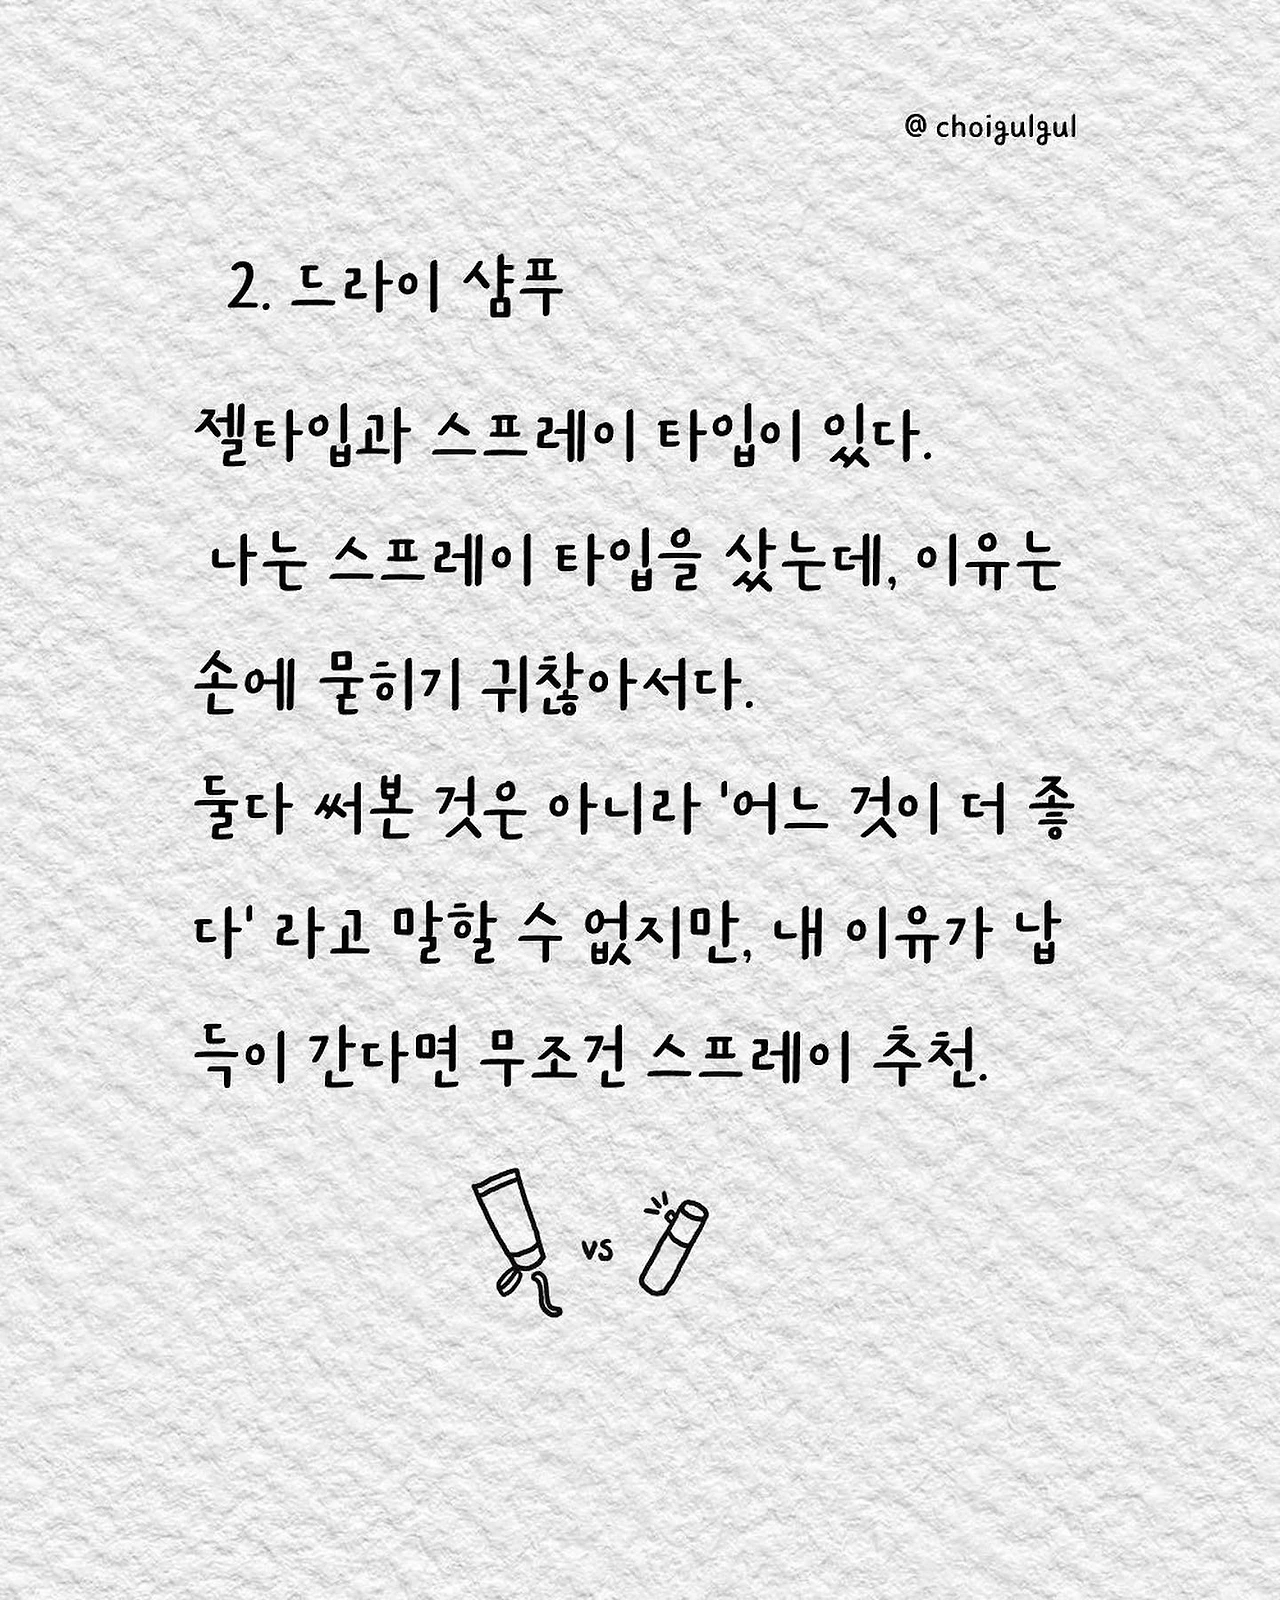 @ choigulgul
2. 드라이 샴푸
젤타입과 스프레이 타입이 있다.
나는 스프레이 타입을 샀는데, 이유는
손에 묻히기 귀찮아서다.
둘다 써본 것은 아니라 '어느 것이 더 좋
다' 라고 말할 수 없지만, 내 이유가 납
득이 간다면 무조건 스프레이 추천.
vs